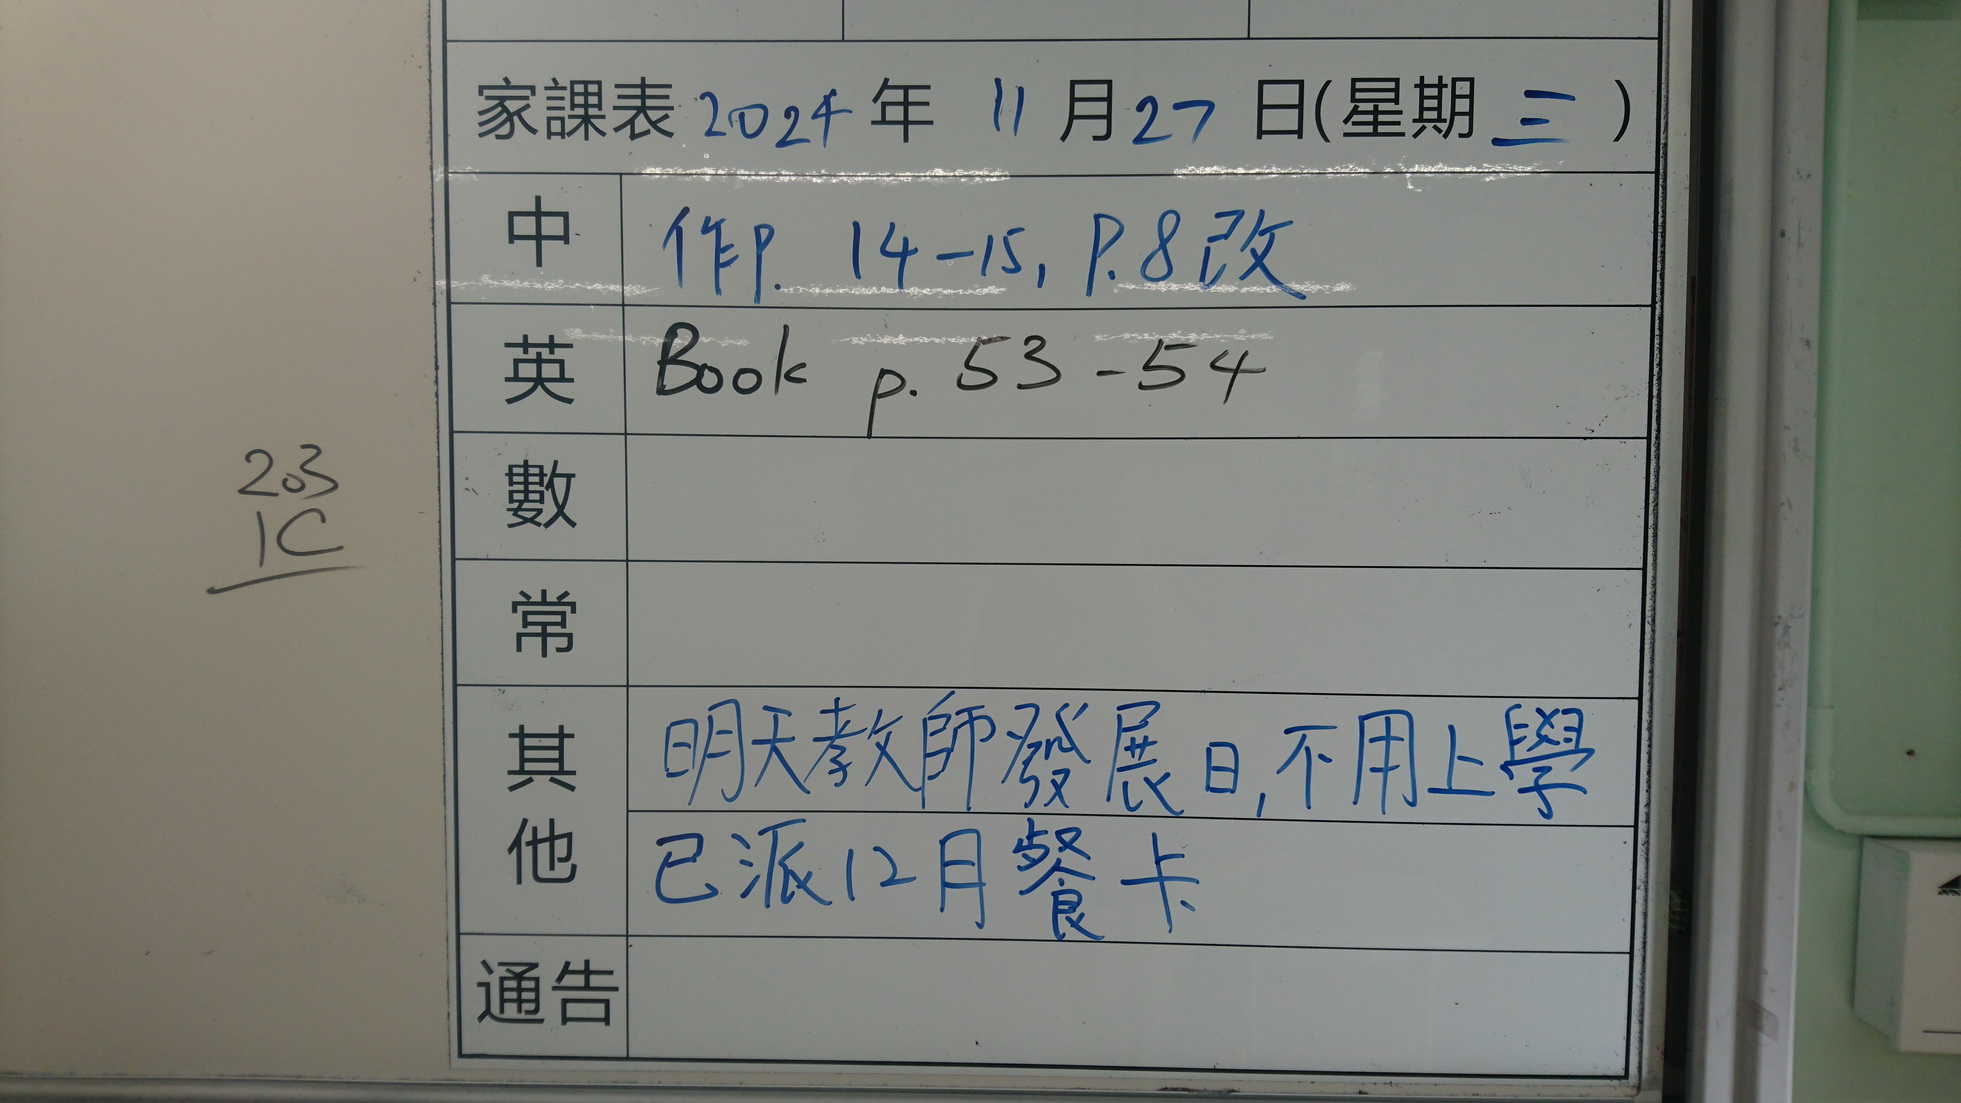 家課表 2024 年 11 月 27 日(星期 三 )
中 作p. 14-15, P.8改
英 Book p. 53-54
數
203
1C
常
其他
明天教師發展日,不用上學
已派12月餐卡
通告